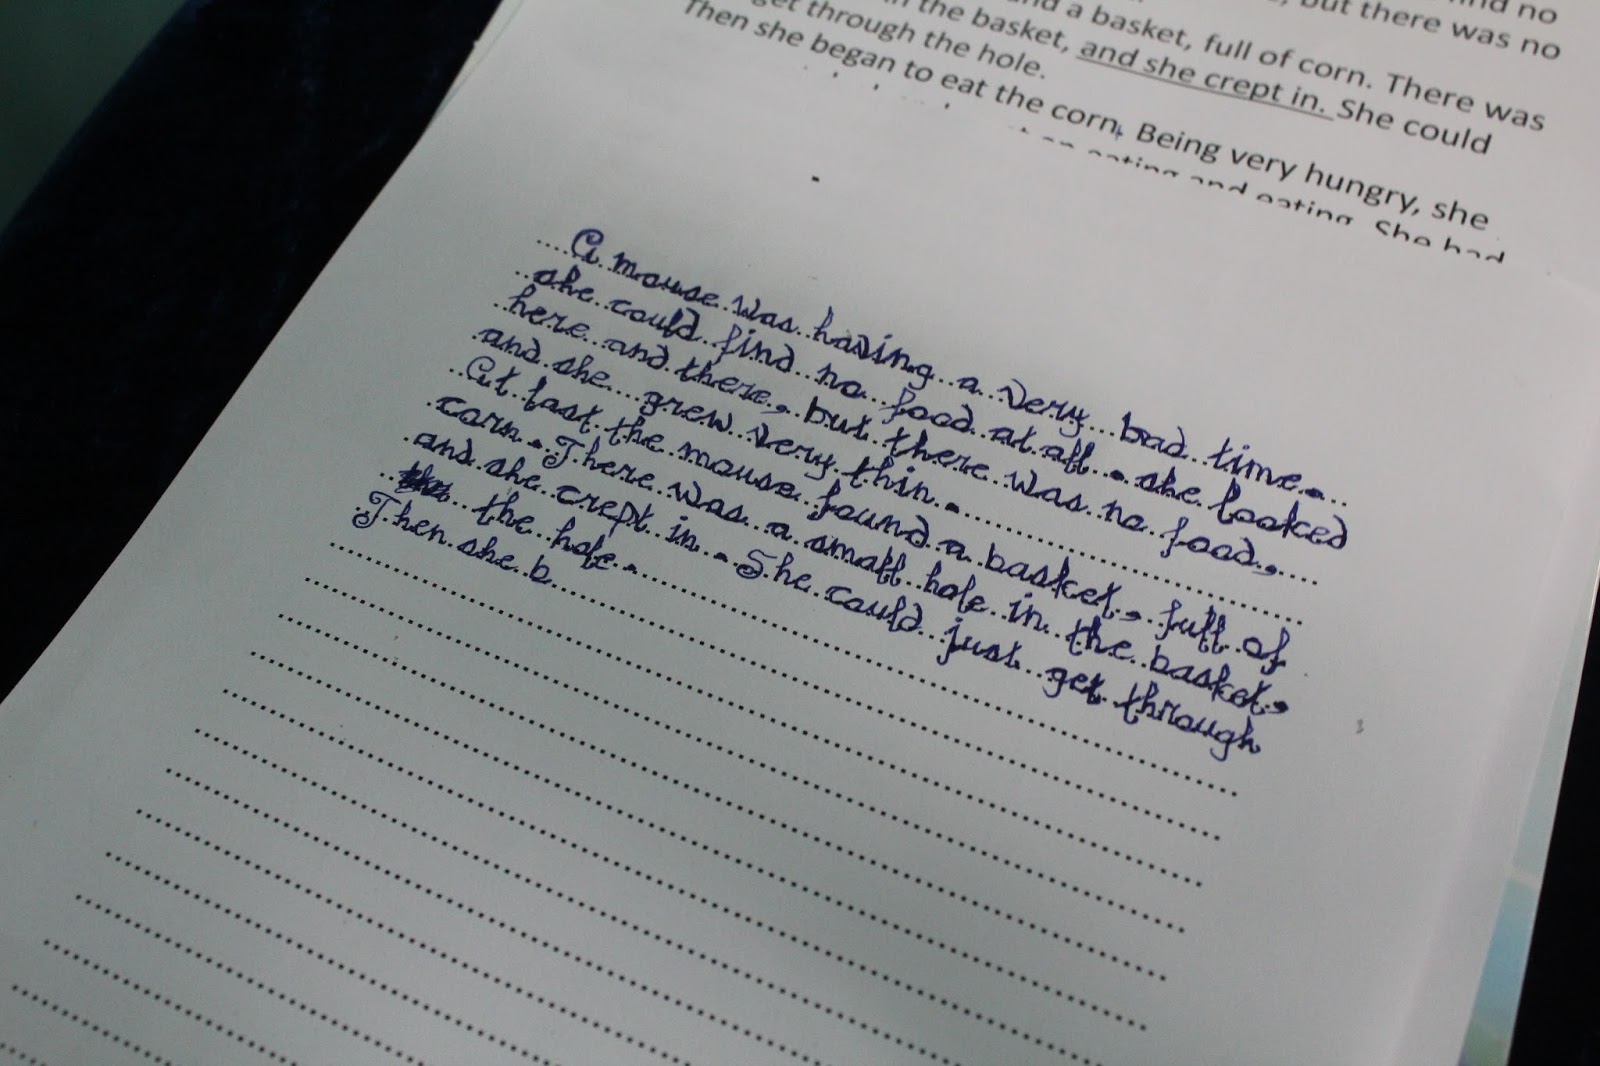 find no
, but there was no
a basket, full of corn. There was
in the basket, and she crept in. She could
get through the hole.
Then she began to eat the corn. Being very hungry, she
eating and eating. She had
A mouse was having a very bad time.
she could find no food at all. she looked
here and there, but there was no food,
and she grew very thin.
At last the mouse found a basket, full of
corn. There was a small hole in the basket,
and she crept in. She could just get through
the hole.
Then she b